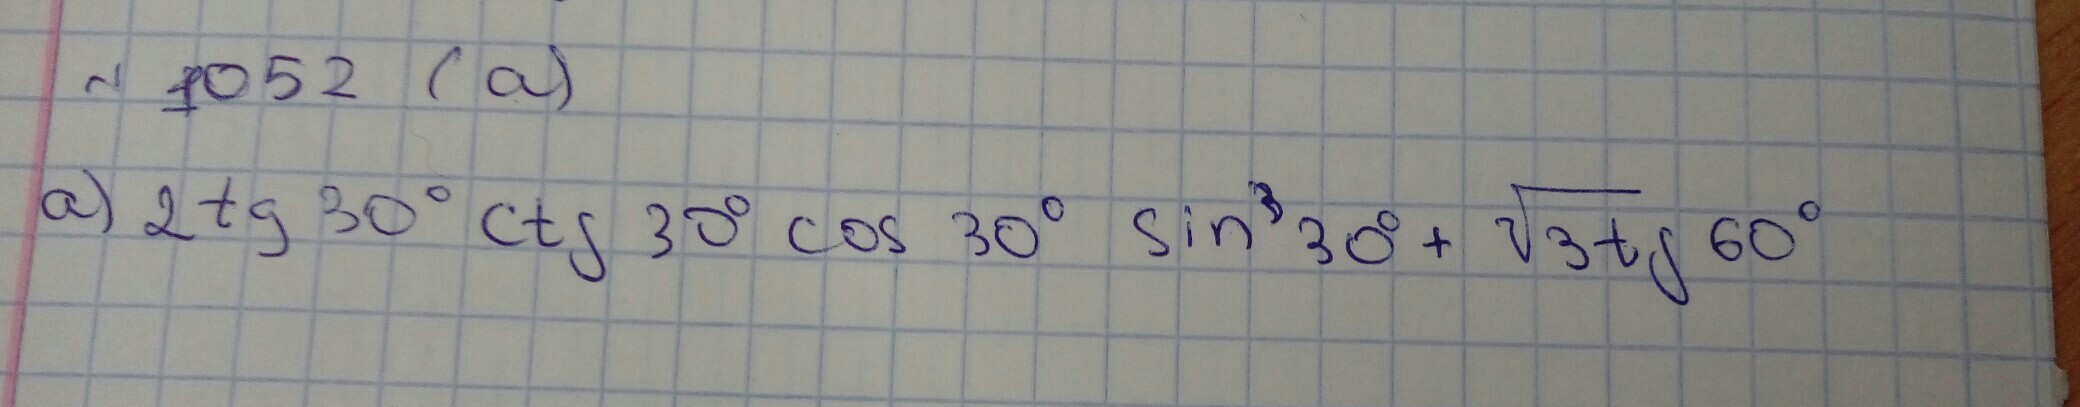 ~ 1052 (a)
a) 2tg 30° ctg 30° cos 30° sin³30° + √3tg 60°